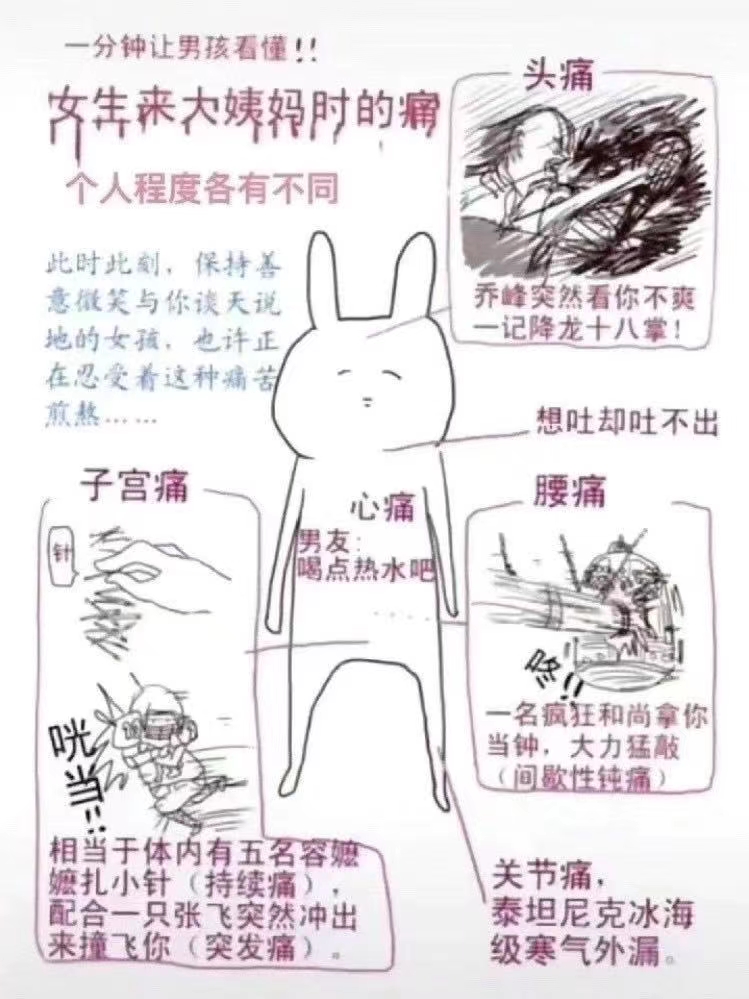 一分钟让男孩看懂!!
女生来大姨妈时的痛
个人程度各有不同
此时此刻，保持善
意微笑与你谈天说
地的女孩，也许正
在忍受着这种痛苦
煎熬……
头痛
乔峰突然看你不爽
一记降龙十八掌！
想吐却吐不出
子宫痛
针
咣当!!
相当于体内有五名容嬷
嬷扎小针（持续痛），
配合一只张飞突然冲出
来撞飞你（突发痛）。
心痛
男友：
喝点热水吧
......
腰痛
咚!!
一名疯狂和尚拿你
当钟，大力猛敲
（间歇性钝痛）
关节痛，
泰坦尼克冰海
级寒气外漏。